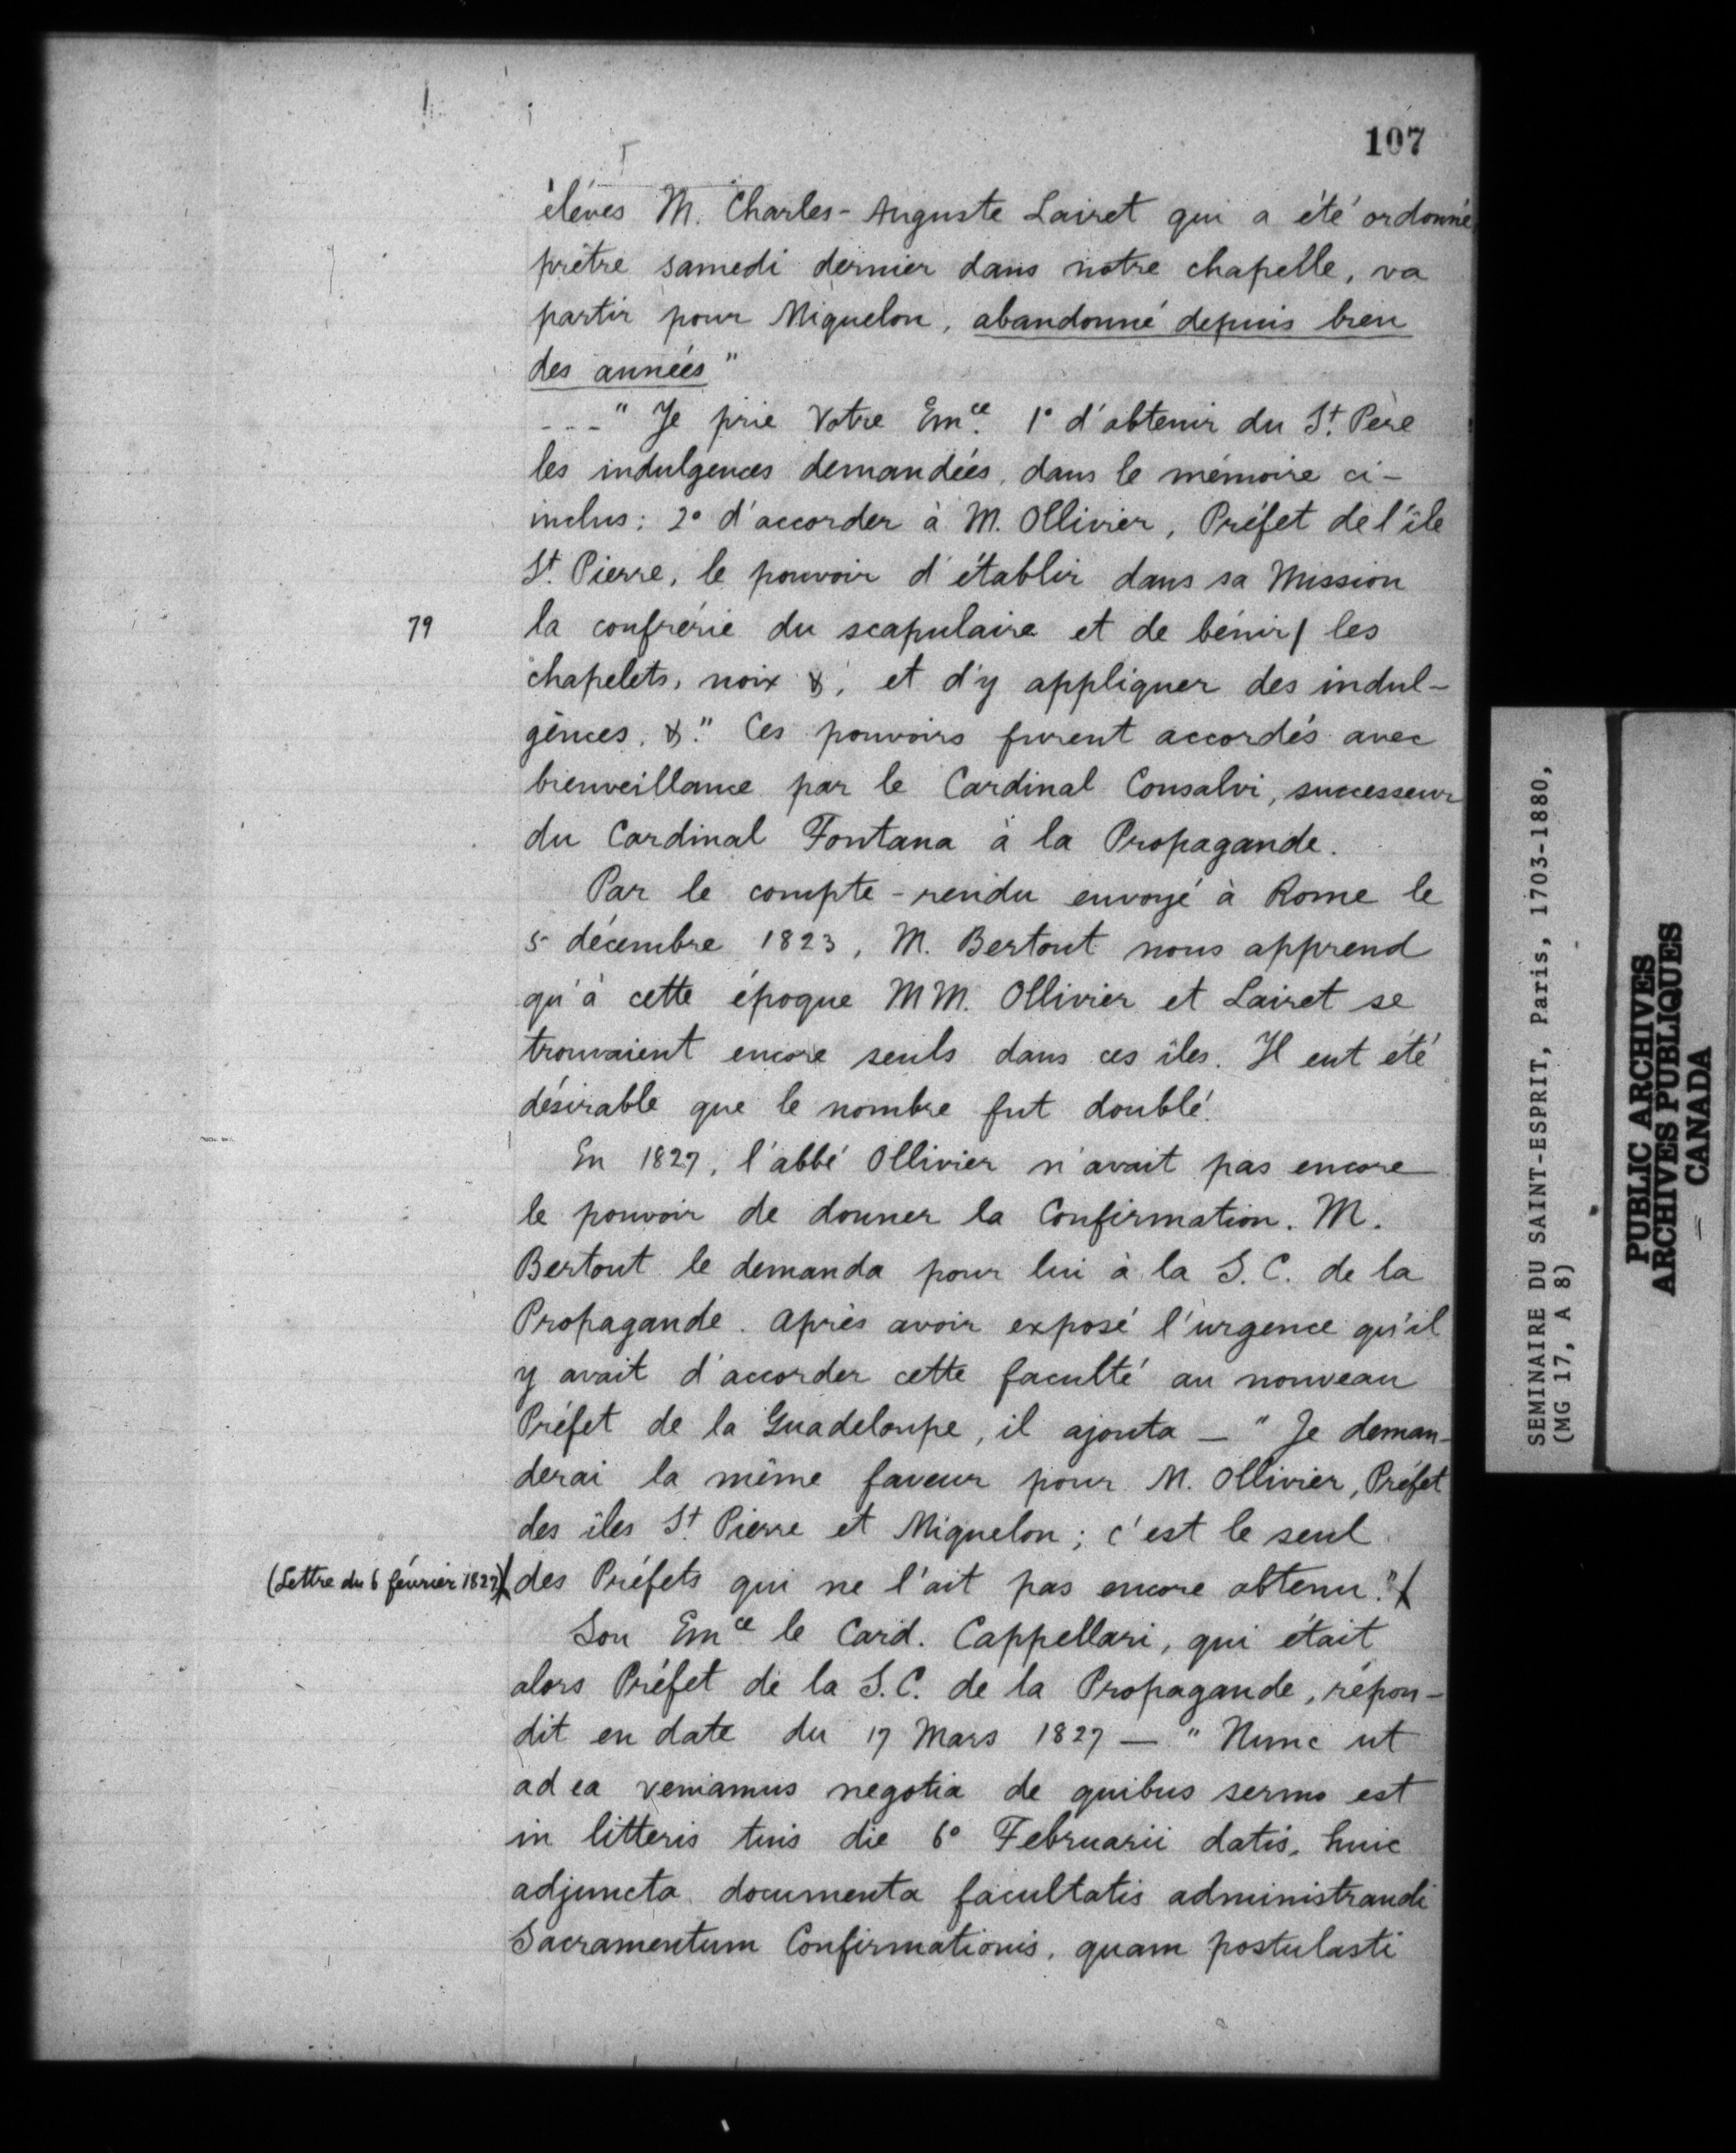 107
élèves M. Charles-Auguste Lairet qui a été ordonné
prêtre samedi dernier dans notre chapelle, va
partir pour Miquelon, abandonné depuis bien
des années"
--- "Je prie Votre Em.ce 1° d'obtenir du St. Père
les indulgences demandées, dans le mémoire ci-
inclus: 2° d'accorder à M. Ollivier, Préfet de l'île
St. Pierre, le pouvoir d'établir dans sa Mission
79 la confrérie du scapulaire et de bénir/ les
chapelets, noix &, et d'y appliquer des indul-
gences, &." Ces pouvoirs furent accordés avec
bienveillance par le Cardinal Consalvi, successeur
du Cardinal Fontana à la Propagande.
Par le compte-rendu envoyé à Rome le
5 décembre 1823, M. Bertout nous apprend
qu'à cette époque MM. Ollivier et Lairet se
trouvaient encore seuls dans ces îles. Il eut été
désirable que le nombre fut doublé.
En 1827, l'abbé Ollivier n'avait pas encore
le pouvoir de donner la Confirmation. M.
Bertout le demanda pour lui à la S. C. de la
Propagande. Après avoir exposé l'urgence qu'il
y avait d'accorder cette faculté au nouveau
Préfet de la Guadeloupe, il ajouta — "Je deman-
derai la même faveur pour M. Ollivier, Préfet
des îles St. Pierre et Miquelon; c'est le seul
(Lettre du 6 février 1827) des Préfets qui ne l'ait pas encore obtenu."
Son Em.ce le Card. Cappellari, qui était
alors Préfet de la S.C. de la Propagande, répon-
dit en date du 17 Mars 1827 — "Nunc ut
ad ea veniamus negotia de quibus sermo est
in litteris tuis die 6° Februarii datis, huic
adjuncta documenta facultatis administrandi
Sacramentum Confirmationis, quam postulasti
SEMINAIRE DU SAINT-ESPRIT, Paris, 1703-1880,
(MG 17, A 8)
PUBLIC ARCHIVES
ARCHIVES PUBLIQUES
CANADA